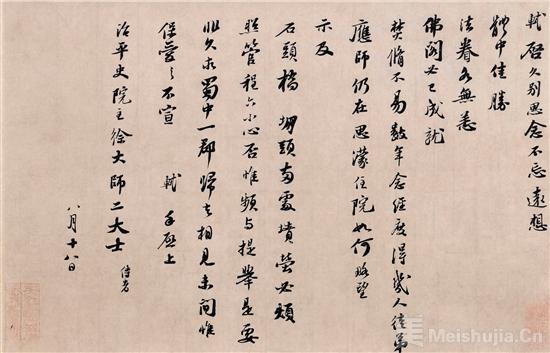 轼启久别思念不忘远想
體中佳勝
法眷各無恙
佛閣必已成就
焚脩不易數年念經度得幾人徒弟
應師仍在思濛住院如何略望
示及
石頭橋堋頭兩處墳塋必煩
照管程六小心否惟頻與提舉是要
非久求蜀中一郡歸去相見未間惟
保愛之不宣 軾手啓上
治平史院主徐大師二大士 侍者
八月十八日
Meishujia.Cn